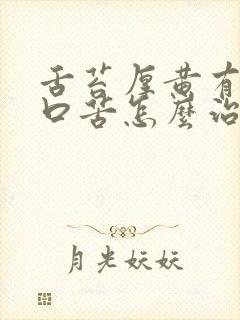 舌苔厚黄有
口苦怎麽治
月光妖妖